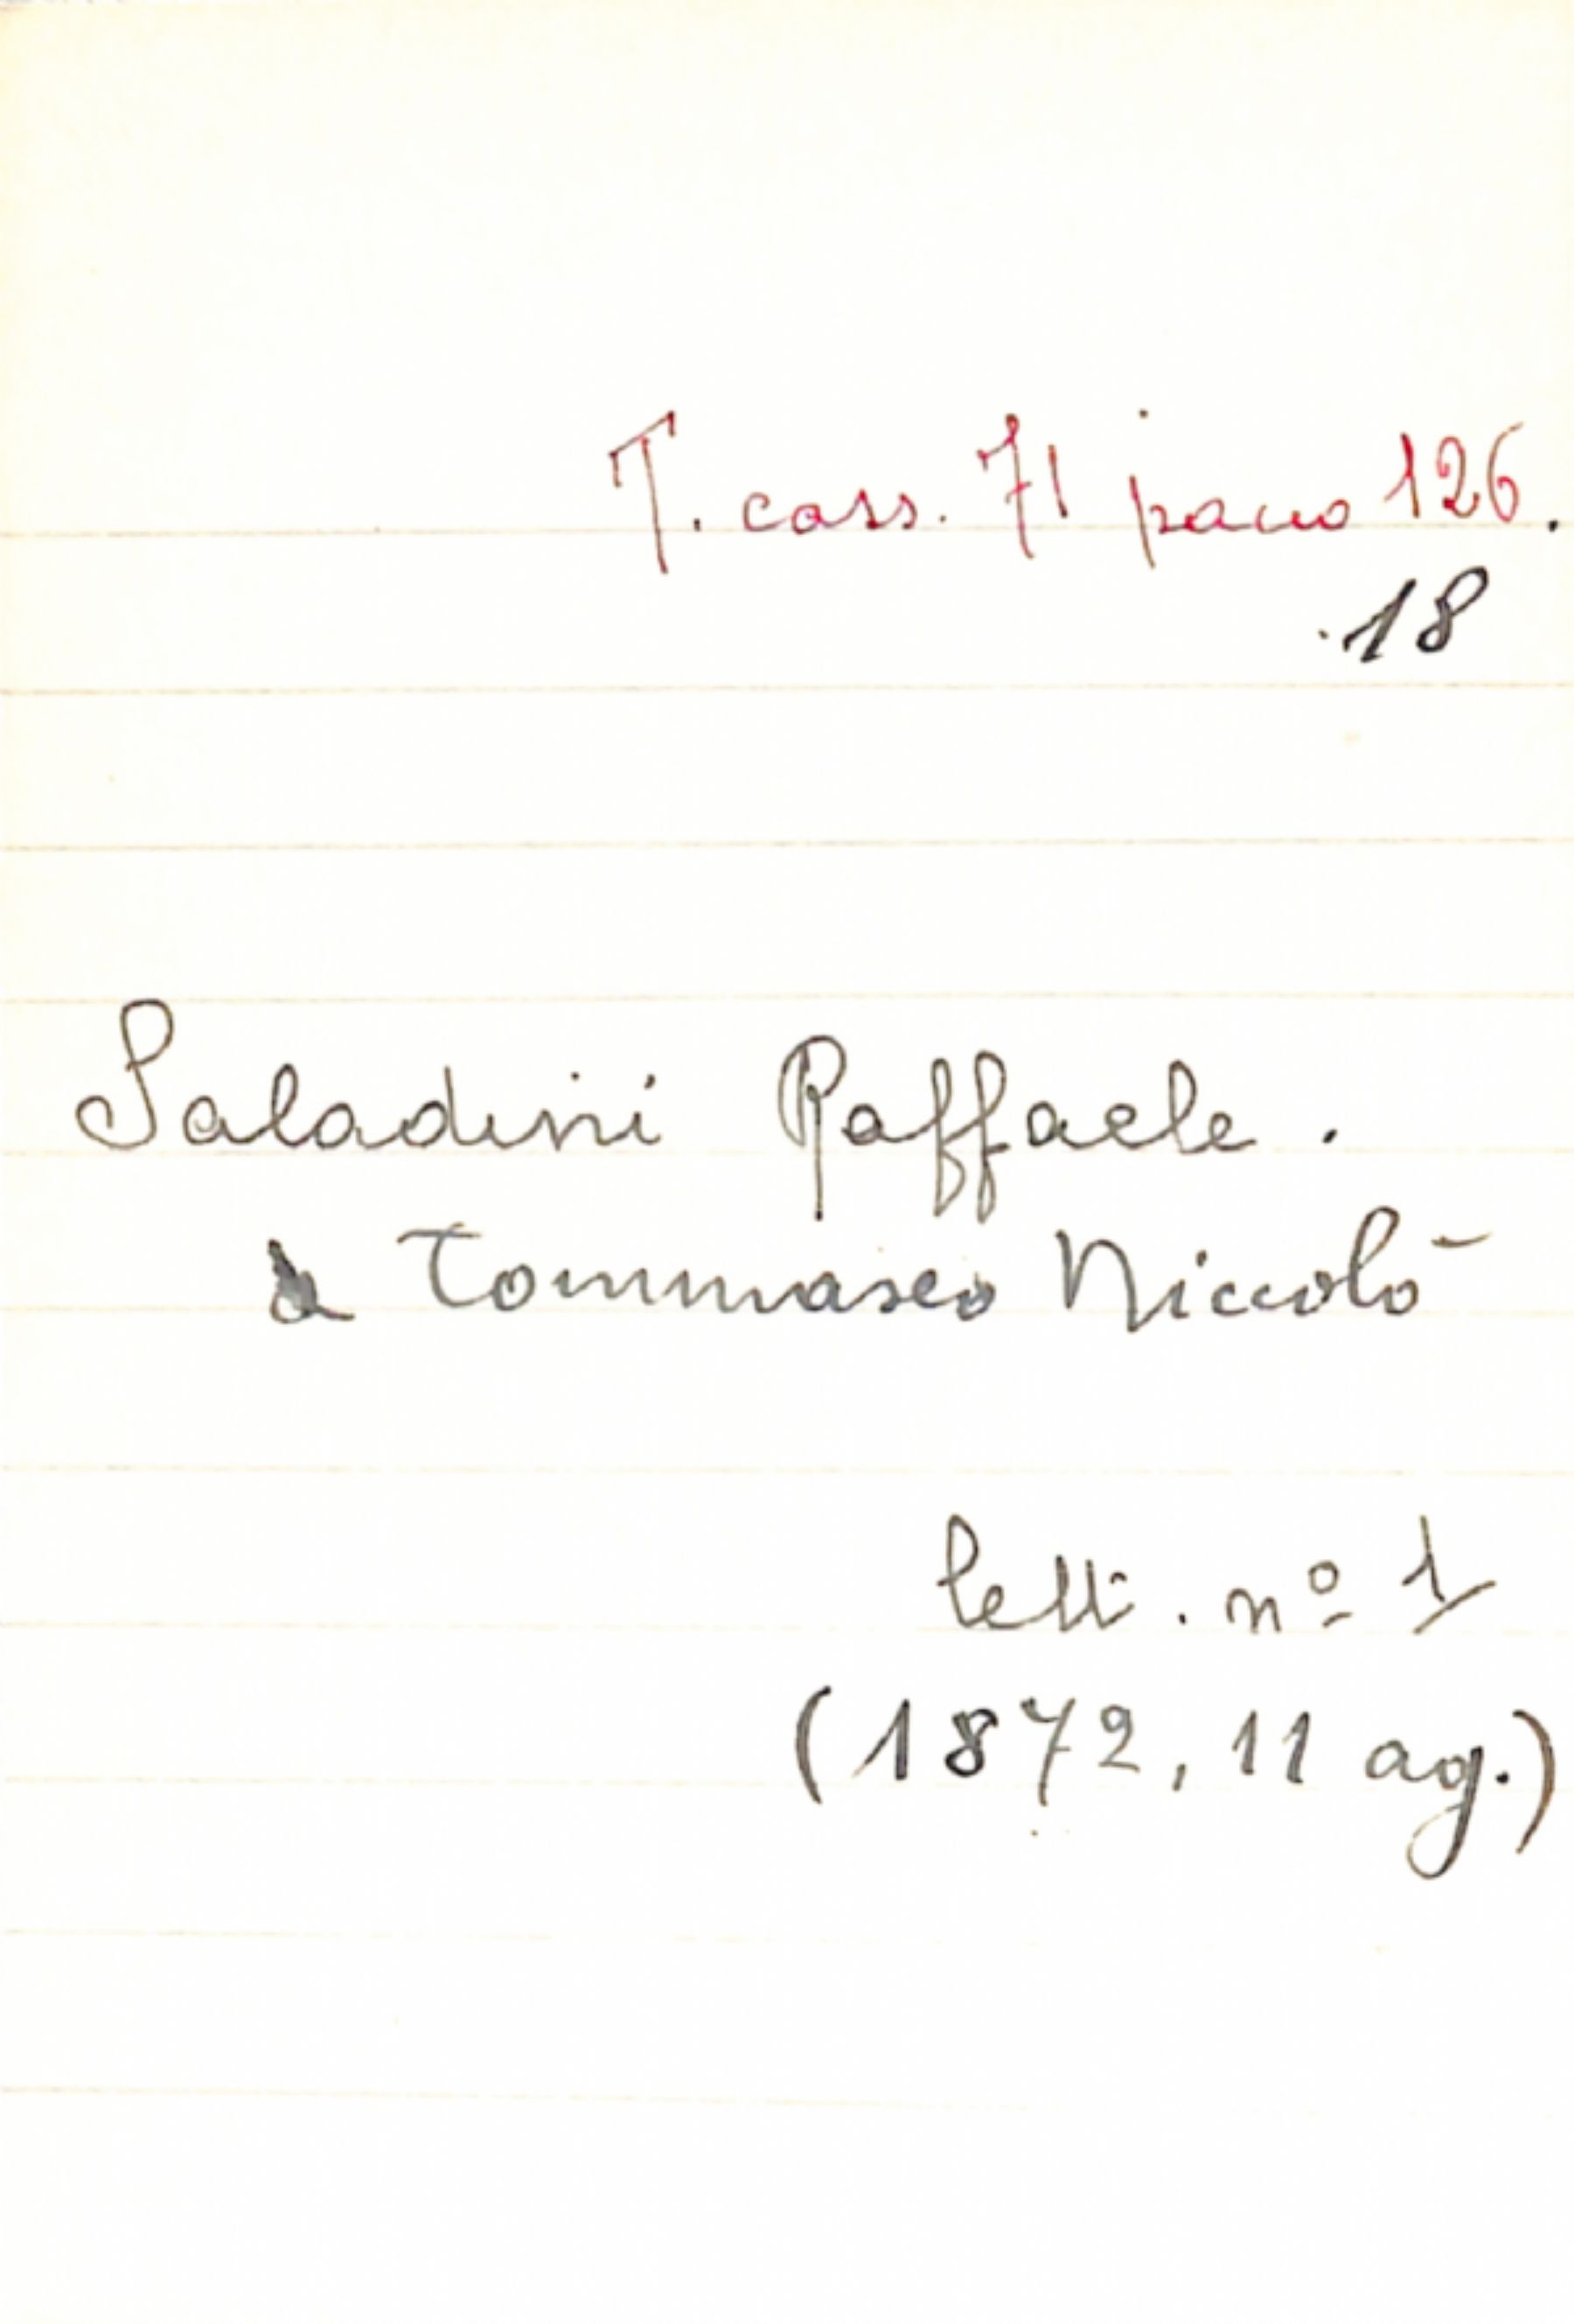 T. cass. 71 pacco 126.
.18
Saladini Raffaele.
a Tommaseo Niccolò
lett. nº 1
(1872, 11 ag.)